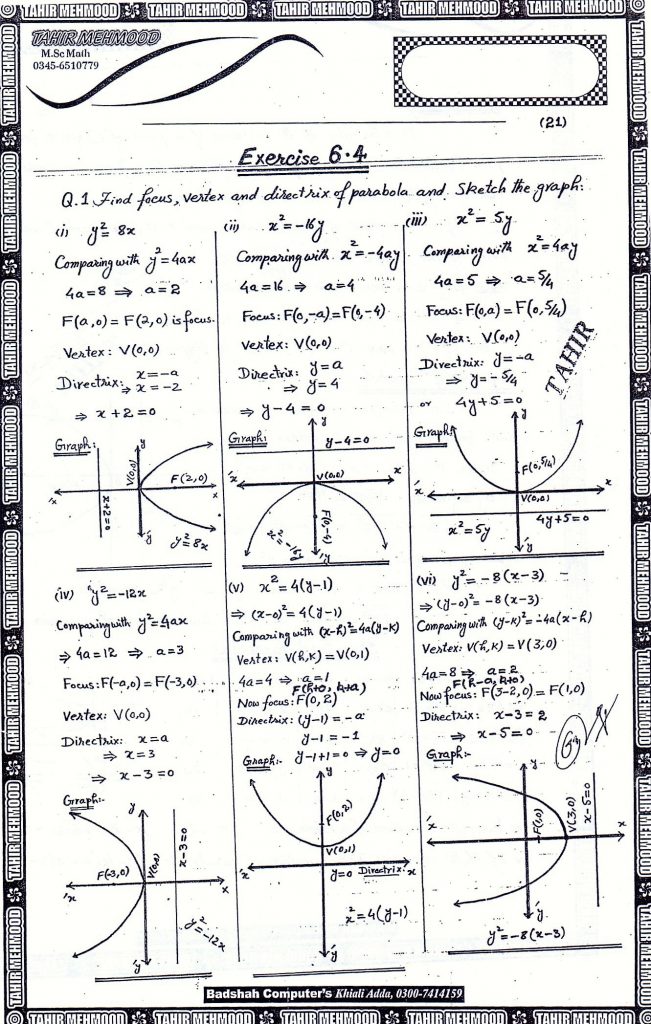 TAHIR MEHMOOD TAHIR MEHMOOD TAHIR MEHMOOD TAHIR MEHMOOD TAHIR MEHMOOD
TAHIR MEHMOOD
M.Sc Math
0345-6510779
(21)
Exercise 6.4
Q.1 Find focus, vertex and directrix of parabola and Sketch the graph:
(i) y² = 8x
Comparing with y² = 4ax
4a = 8 ⇒ a = 2
F(a,0) = F(2,0) is focus.
Vertex: V(0,0)
Directrix: x = -a
⇒ x = -2
⇒ x + 2 = 0
Graph:
y
V(0,0)
F(2,0)
x+2=0
'x
x
'y
y² = 8x
(ii) x² = -16y
Comparing with x² = -4ay
4a = 16 ⇒ a = 4
Focus: F(0,-a) = F(0,-4)
Vertex: V(0,0)
Directrix: y = a
⇒ y = 4
⇒ y - 4 = 0
Graph:
y
y-4=0
'x
x
V(0,0)
F(0,-4)
x² = -16y
'y
(iii) x² = 5y
Comparing with x² = 4ay
4a = 5 ⇒ a = 5/4
Focus: F(0,a) = F(0,5/4)
Vertex: V(0,0)
Directrix: y = -a
⇒ y = -5/4
or 4y+5=0
TAHIR
Graph:
y
F(0,5/4)
'x
x
V(0,0)
x² = 5y
4y+5=0
'y
(iv) y² = -12x
Comparing with y² = 4ax
⇒ 4a = 12 ⇒ a = 3
Focus: F(-a,0) = F(-3,0)
Vertex: V(0,0)
Directrix: x = a
⇒ x = 3
⇒ x - 3 = 0
Graph:-
y
F(-3,0)
V(0,0)
x-3=0
'x
x
y² = -12x
'y
(v) x² = 4(y-1)
⇒ (x-0)² = 4(y-1)
Comparing with (x-h)² = 4a(y-k)
Vertex: V(h,k) = V(0,1)
4a = 4 ⇒ a = 1
F(h+0, k+a)
Now focus: F(0,2)
Directrix: (y-1) = -a
y-1 = -1
y-1+1=0 ⇒ y=0
Graph:-
y
F(0,2)
V(0,1)
'x
y=0 Directrix
x
x² = 4(y-1)
'y
(vi) y² = -8(x-3)
⇒ (y-0)² = -8(x-3)
Comparing with (y-k)² = -4a(x-h)
Vertex: V(h,k) = V(3,0)
4a = 8 ⇒ a = 2
F(h-a, k+0)
Now focus: F(3-2,0) = F(1,0)
Directrix: x-3 = 2
⇒ x-5 = 0
Graph:-
y
'x
x
F(1,0)
V(3,0)
x-5=0
'y
y² = -8(x-3)
Badshah Computer's Khiali Adda, 0300-7414159
TAHIR MEHMOOD TAHIR MEHMOOD TAHIR MEHMOOD TAHIR MEHMOOD TAHIR MEHMOOD